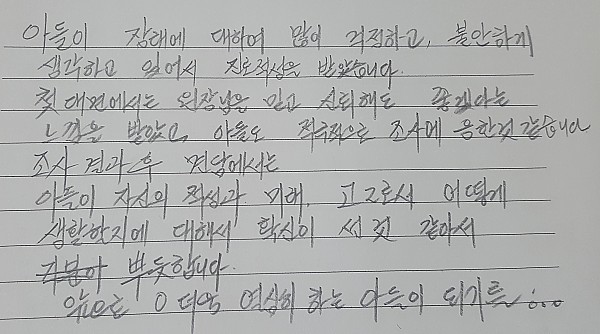 아들이 장래에 대하여 많이 걱정하고, 불안하게
생각하고 있어서 진로적성을 받았습니다.
첫 대면에서는 원장님을 믿고 신뢰해도 좋겠다는
느낌을 받았고, 아들도 적극적으로 조사에 응한것 같습니다
조사 결과 후 면담에서는
아들이 자신의 적성과 미래, 고그로서 어떻게
생활할지에 대해서 확신이 선 것 같아서
뿌듯합니다.
앞으로 더 열심히 하는 아들이 되기를...